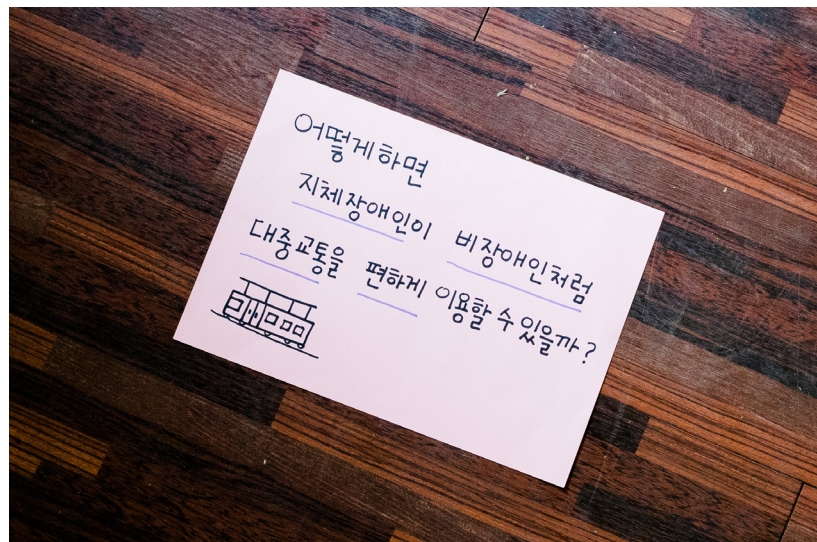 어떻게하면
지체장애인이 비장애인처럼
대중교통을 편하게 이용할 수 있을까?